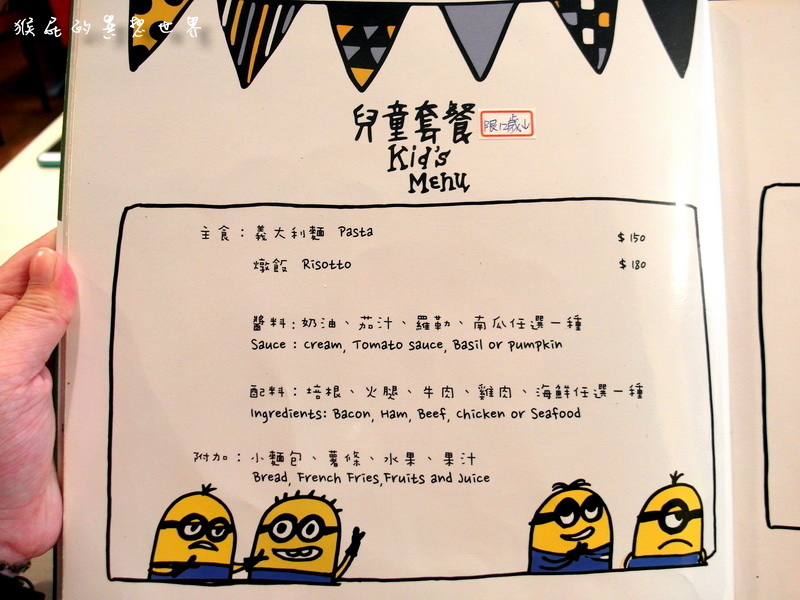 猴屁的異想世界
兒童套餐 限12歲↓
Kid's
Menu
主食：義大利麵 Pasta $150
燉飯 Risotto $180
醬料：奶油、茄汁、羅勒、南瓜任選一種
Sauce : cream, Tomato sauce, Basil or pumpkin
配料：培根、火腿、牛肉、雞肉、海鮮任選一種
Ingredients: Bacon, Ham, Beef, chicken or Seafood
附加：小麵包、薯條、水果、果汁
Bread, French Fries,Fruits and Juice